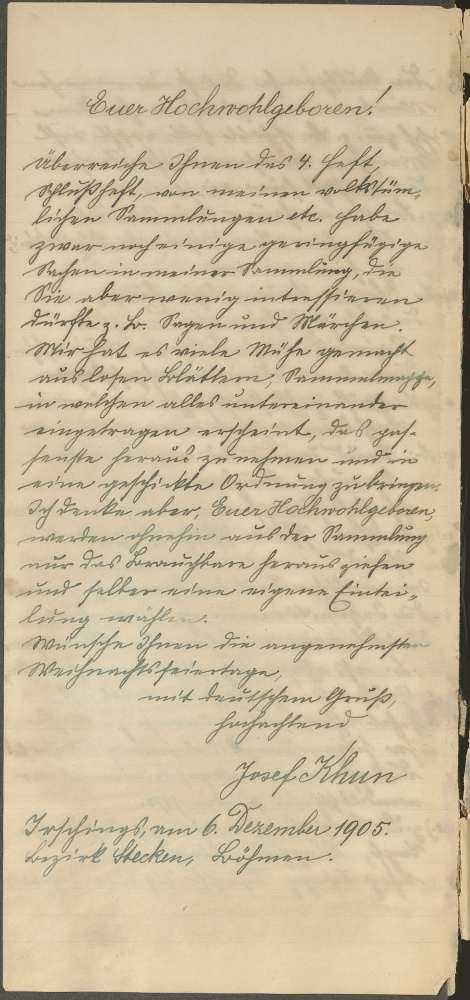 Euer Hochwohlgeboren!
Überreiche Ihnen das 4. Heft,
Schlußheft, von meinen volkstüm-
lichen Sammlungen etc. Habe
zwar noch einige geringfügige
Sachen in meiner Sammlung, die
Sie aber wenig intressieren
dürfte z. B. Sagen und Märchen.
Mir hat es viele Mühe gemacht
aus losen Blättern, Sammelmappe,
in welchen alles untereinander
eingetragen erscheint, das pas-
senste heraus zu nehmen und in
eine geschickte Ordnung zu bringen.
Ich denke aber, Euer Hochwohlgeboren,
werden ohnehin aus der Sammlung
nur das Brauchbare heraus ziehen
und selber eine eigene Eintei-
lung wählen.
Wünsche Ihnen die angenehmsten
Weihnachtsfeiertage,
mit deutschem Gruß,
hochachtend
Josef Khun
Irschings, am 6. Dezember 1905.
Bezirk Stecken, Böhmen.